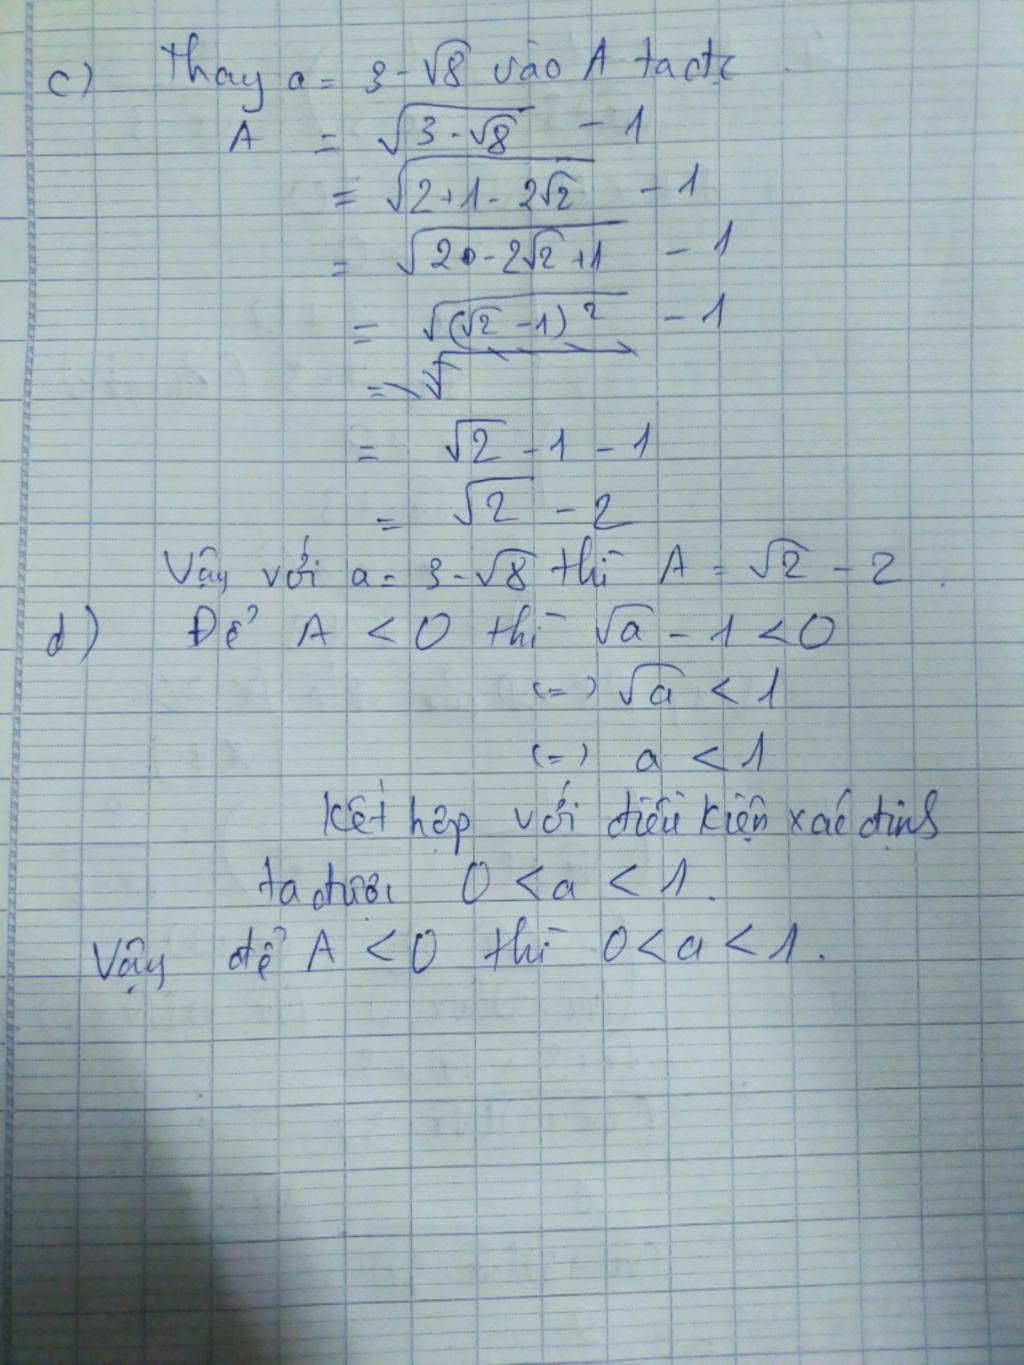 c) Thay a = 3 - √8 vào A ta đc
A = √(3 - √8) - 1
= √(2 + 1 - 2√2) - 1
= √(2 - 2√2 + 1) - 1
= √((√2 - 1)²) - 1
= √2 - 1 - 1
= √2 - 2
Vậy với a = 3 - √8 thì A = √2 - 2.
d) Để A < 0 thì √a - 1 < 0
(=) √a < 1
(=) a < 1
Kết hợp với điều kiện xác định
ta được 0 < a < 1.
Vậy để A < 0 thì 0 < a < 1.